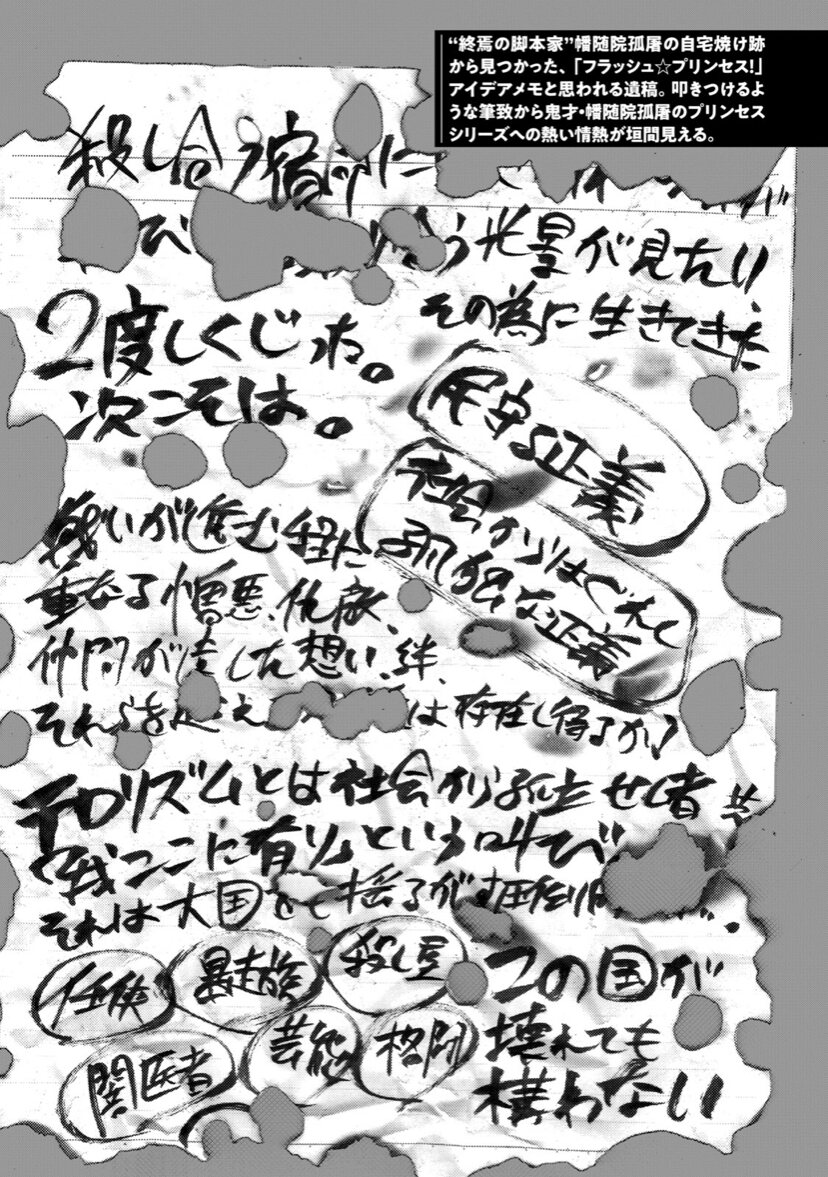 “終焉の脚本家”幡随院孤屠の自宅焼け跡
から見つかった、「フラッシュ☆プリンセス!」
アイデアメモと思われる遺稿。叩きつけるよ
うな筆致から鬼才・幡随院孤屠のプリンセス
シリーズへの熱い情熱が垣間見える。
殺し合う宿命に
び
う光景が見たい、
その為に生きてきた
2度しくじった。
次こそは。
民守る正義
社会からはぐれし
孤独な正義
戦いが進む程に
重なる憎悪、仇敵、
仲間が遺した想い、絆、
それらを超え
は存在し得るか?
テロリズムとは社会から孤立せし者共
「我ここに有り」という叫び
それは大国をも揺るがす圧倒
任侠
暴走族
殺し屋
闇医者
芸能
格闘
この国が
壊れても
構わない